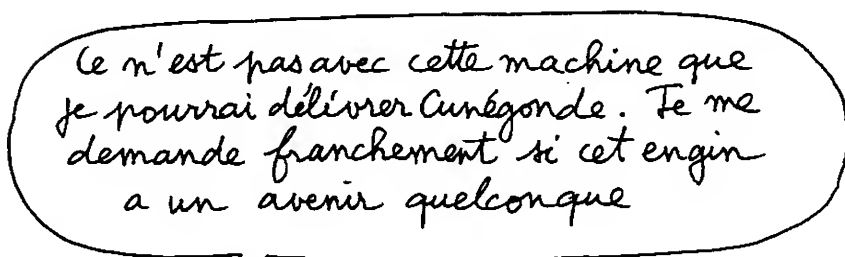 Ce n'est pas avec cette machine que
je pourrai délivrer Cunégonde. Je me
demande franchement si cet engin
a un avenir quelconque